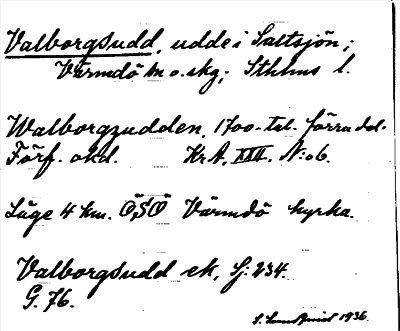 Valborgsudd, udde i Saltsjön;
Värmdö sn o. skg; Sthlms l.
Walborgzudden, 1700-tal. förra del.
Förf. okd. Kr.A. XXII. N:o 6.
Läge 4 km. ÖSÖ Värmdö kyrka.
Valborgsudd ek, Sj: 234.
G. 76.
1936